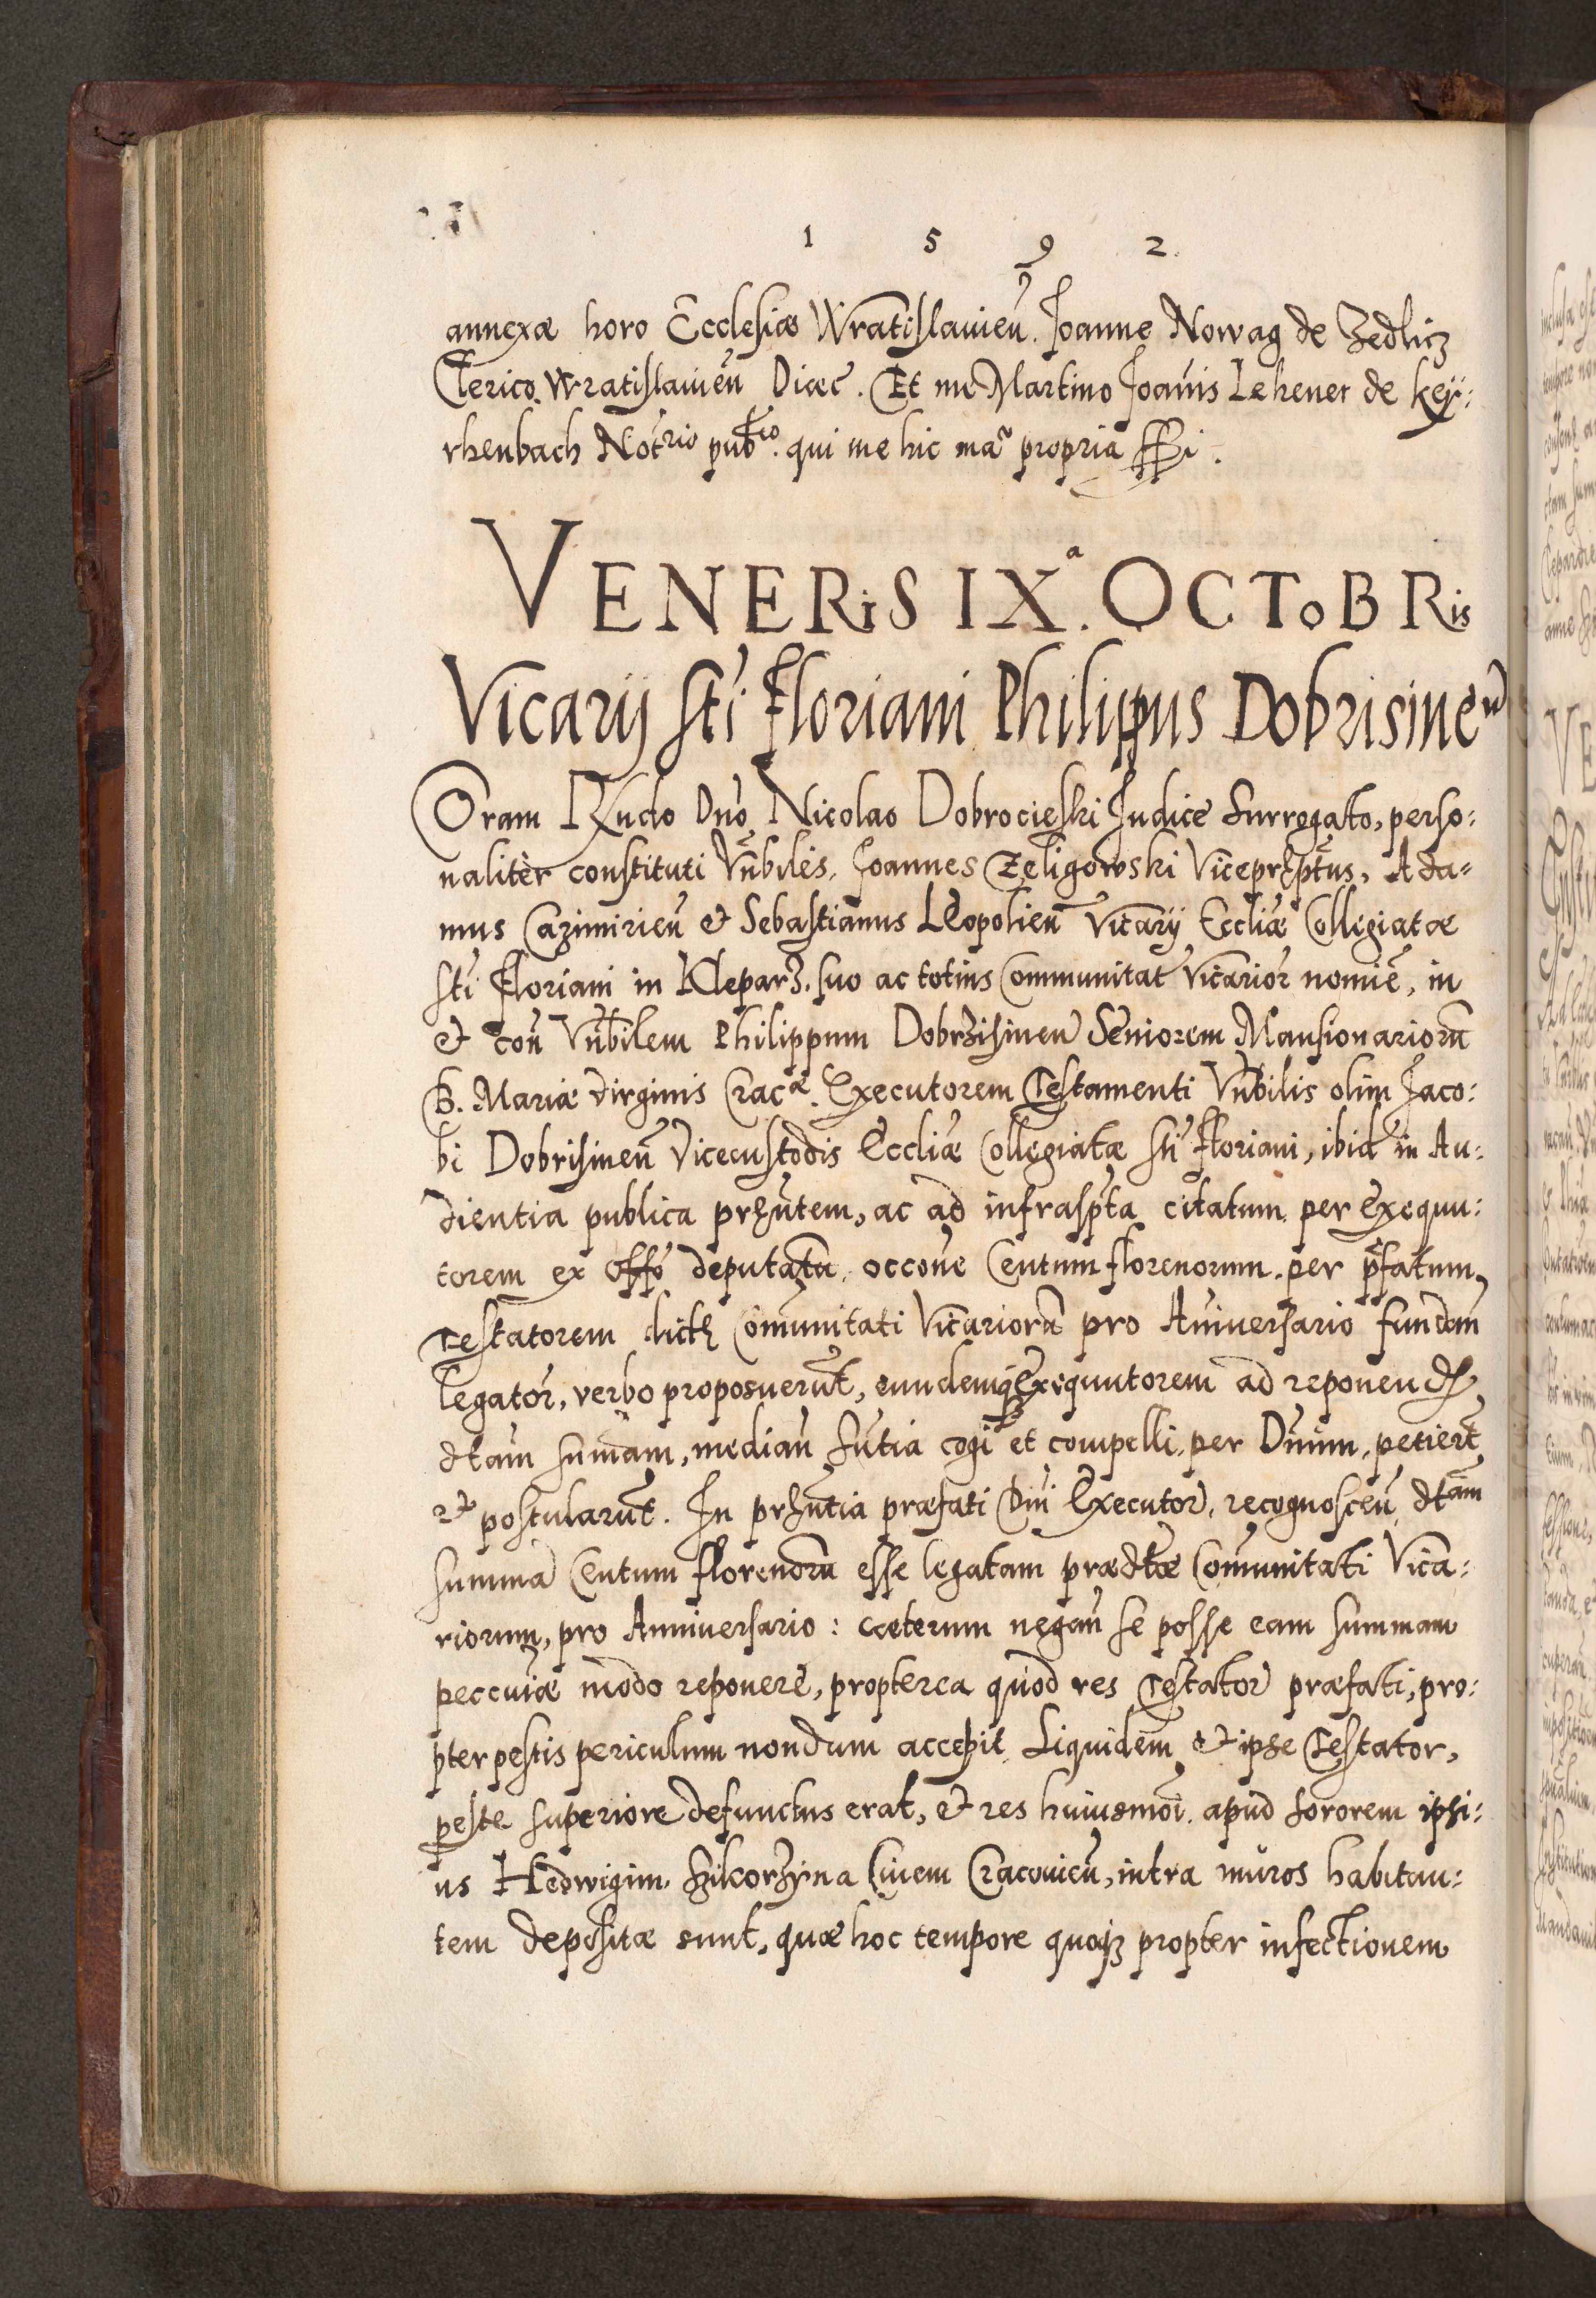 1 5 9 2.
annexæ horo Ecclesiæ Wratislavien̄. Joanne Nowag de Zedlicz
Clerico Wratislavien̄ Diœc. Et me Martino Joan̄is Lehener de keÿ:
rhenbach Notrio pubco. qui me hic mãu propria SSSi.
VENERiS IXa. OCTOBRis
Vicarij sti Floriani Philippus Dobrisinen̄
Coram Rndo Dno Nicolao Dobrocieski Judice Surrogato, perso:
naliter constituti Vnbiles, Joannes Zeligowski Viceprēptus, Ada=
mus Cazimirien̄ & Sebastianus Leopolien̄ Vicarij Eccliæ Collegiatæ
sti Floriani in Klepar3. suo ac totius Communitat Vicarior nomie, in
& con̄ Vnbilem Philippum Dobrzisinen̄ Seniorem Mansionariorũ
B. Mariæ Virginis Cracæ. Executorem Testamenti Vnbilis olim Jaco:
bi Dobrisinen̄ Vicecustodis Eccliæ Collegiatæ sti Floriani, ibid in Au:
dientia publica prn̄tem, ac ad infraspta citatum per Exequu:
torem ex Offo deputatũ, occone Centum florenorum per p̄fatum
Testatorem dictæ Com̄unitati Vicariorũ pro Aniversario fundan̄
legator, verbo proposuerūt, eundemq3 Exequutorem ad reponend
dtam sum̄am, median̄ sn̄tia cogi et compelli, per Dnum, petiert
et postularūt. In prn̄tia præfati Dni Executor, recognoscen̄, dtam
summã Centum florenorũ esse legatam prædtæ Com̄unitati Vica:
riorum, pro Anniversario: cæterum negan̄ se posse eam summam
peccuiæ modo reponere, propterea quod res Testator præfati, pro:
pter pestis periculum nondum accepit. Siquidem & ipse Testator,
peste superiore defunctus erat, & res huiusmoi apud sororem ipsi:
us Hedwigim Szikorzyna Civem Cracovien̄, intra muros habitan:
tem depositæ sunt, quæ hoc tempore quoq3 propter infectionem